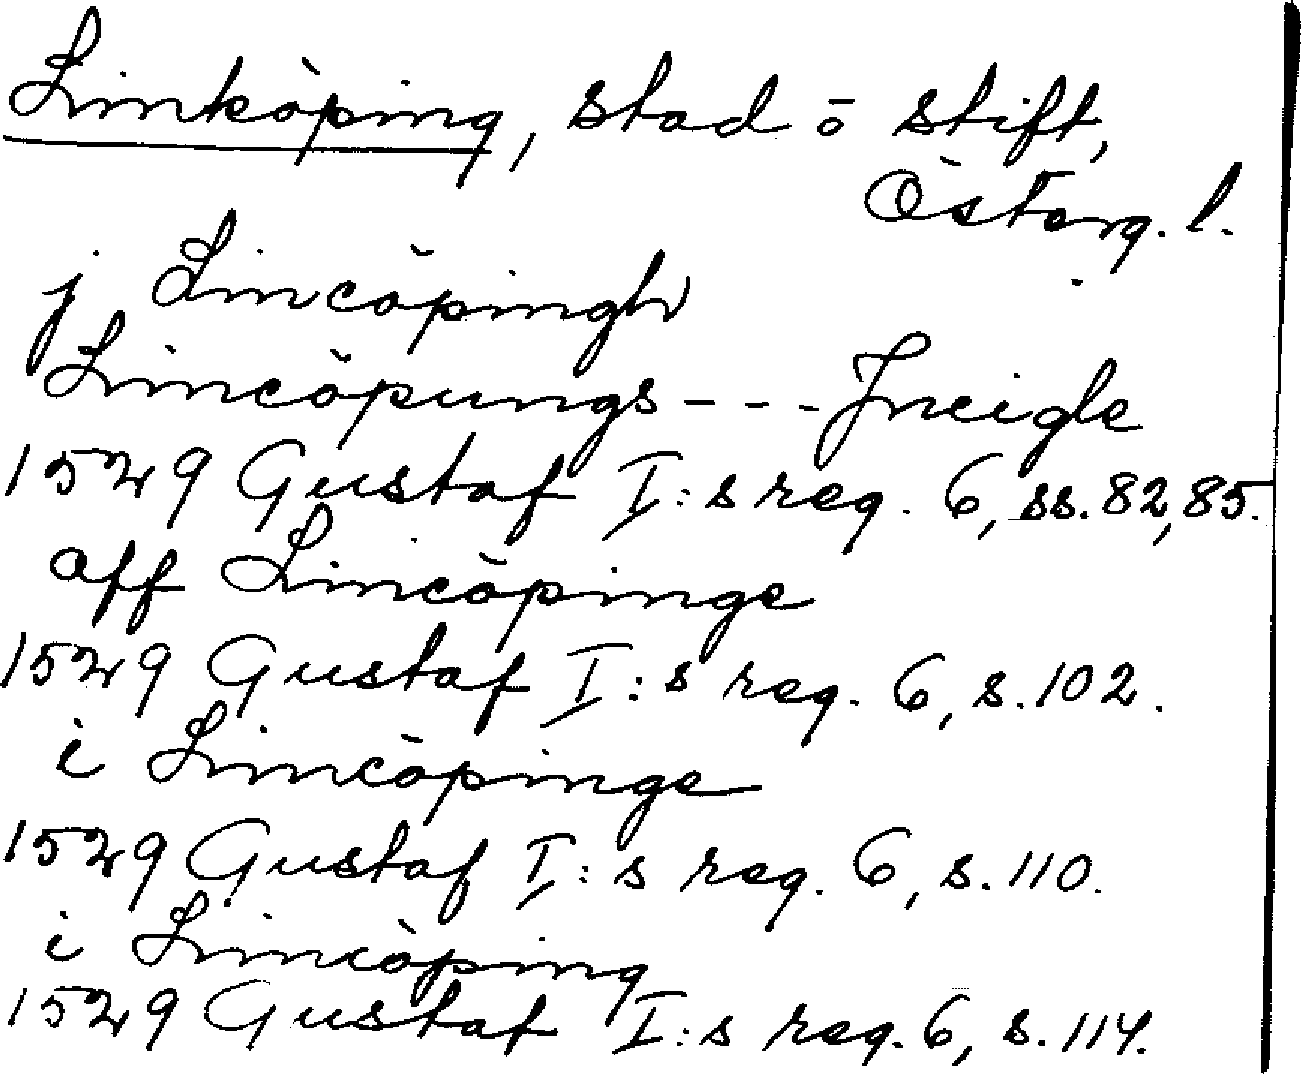 Linköping, stad o stift,
Österg. l.
j Lincöpingh
Lincöpungs - - - Jncigle
1529 Gustaf I:s reg. 6, ss. 82, 85.
aff Lincöpinge
1529 Gustaf I:s reg. 6, s. 102.
i Lincöpinge
1529 Gustaf I:s reg. 6, s. 110.
i Lincöping
1529 Gustaf I:s reg. 6, s. 114.